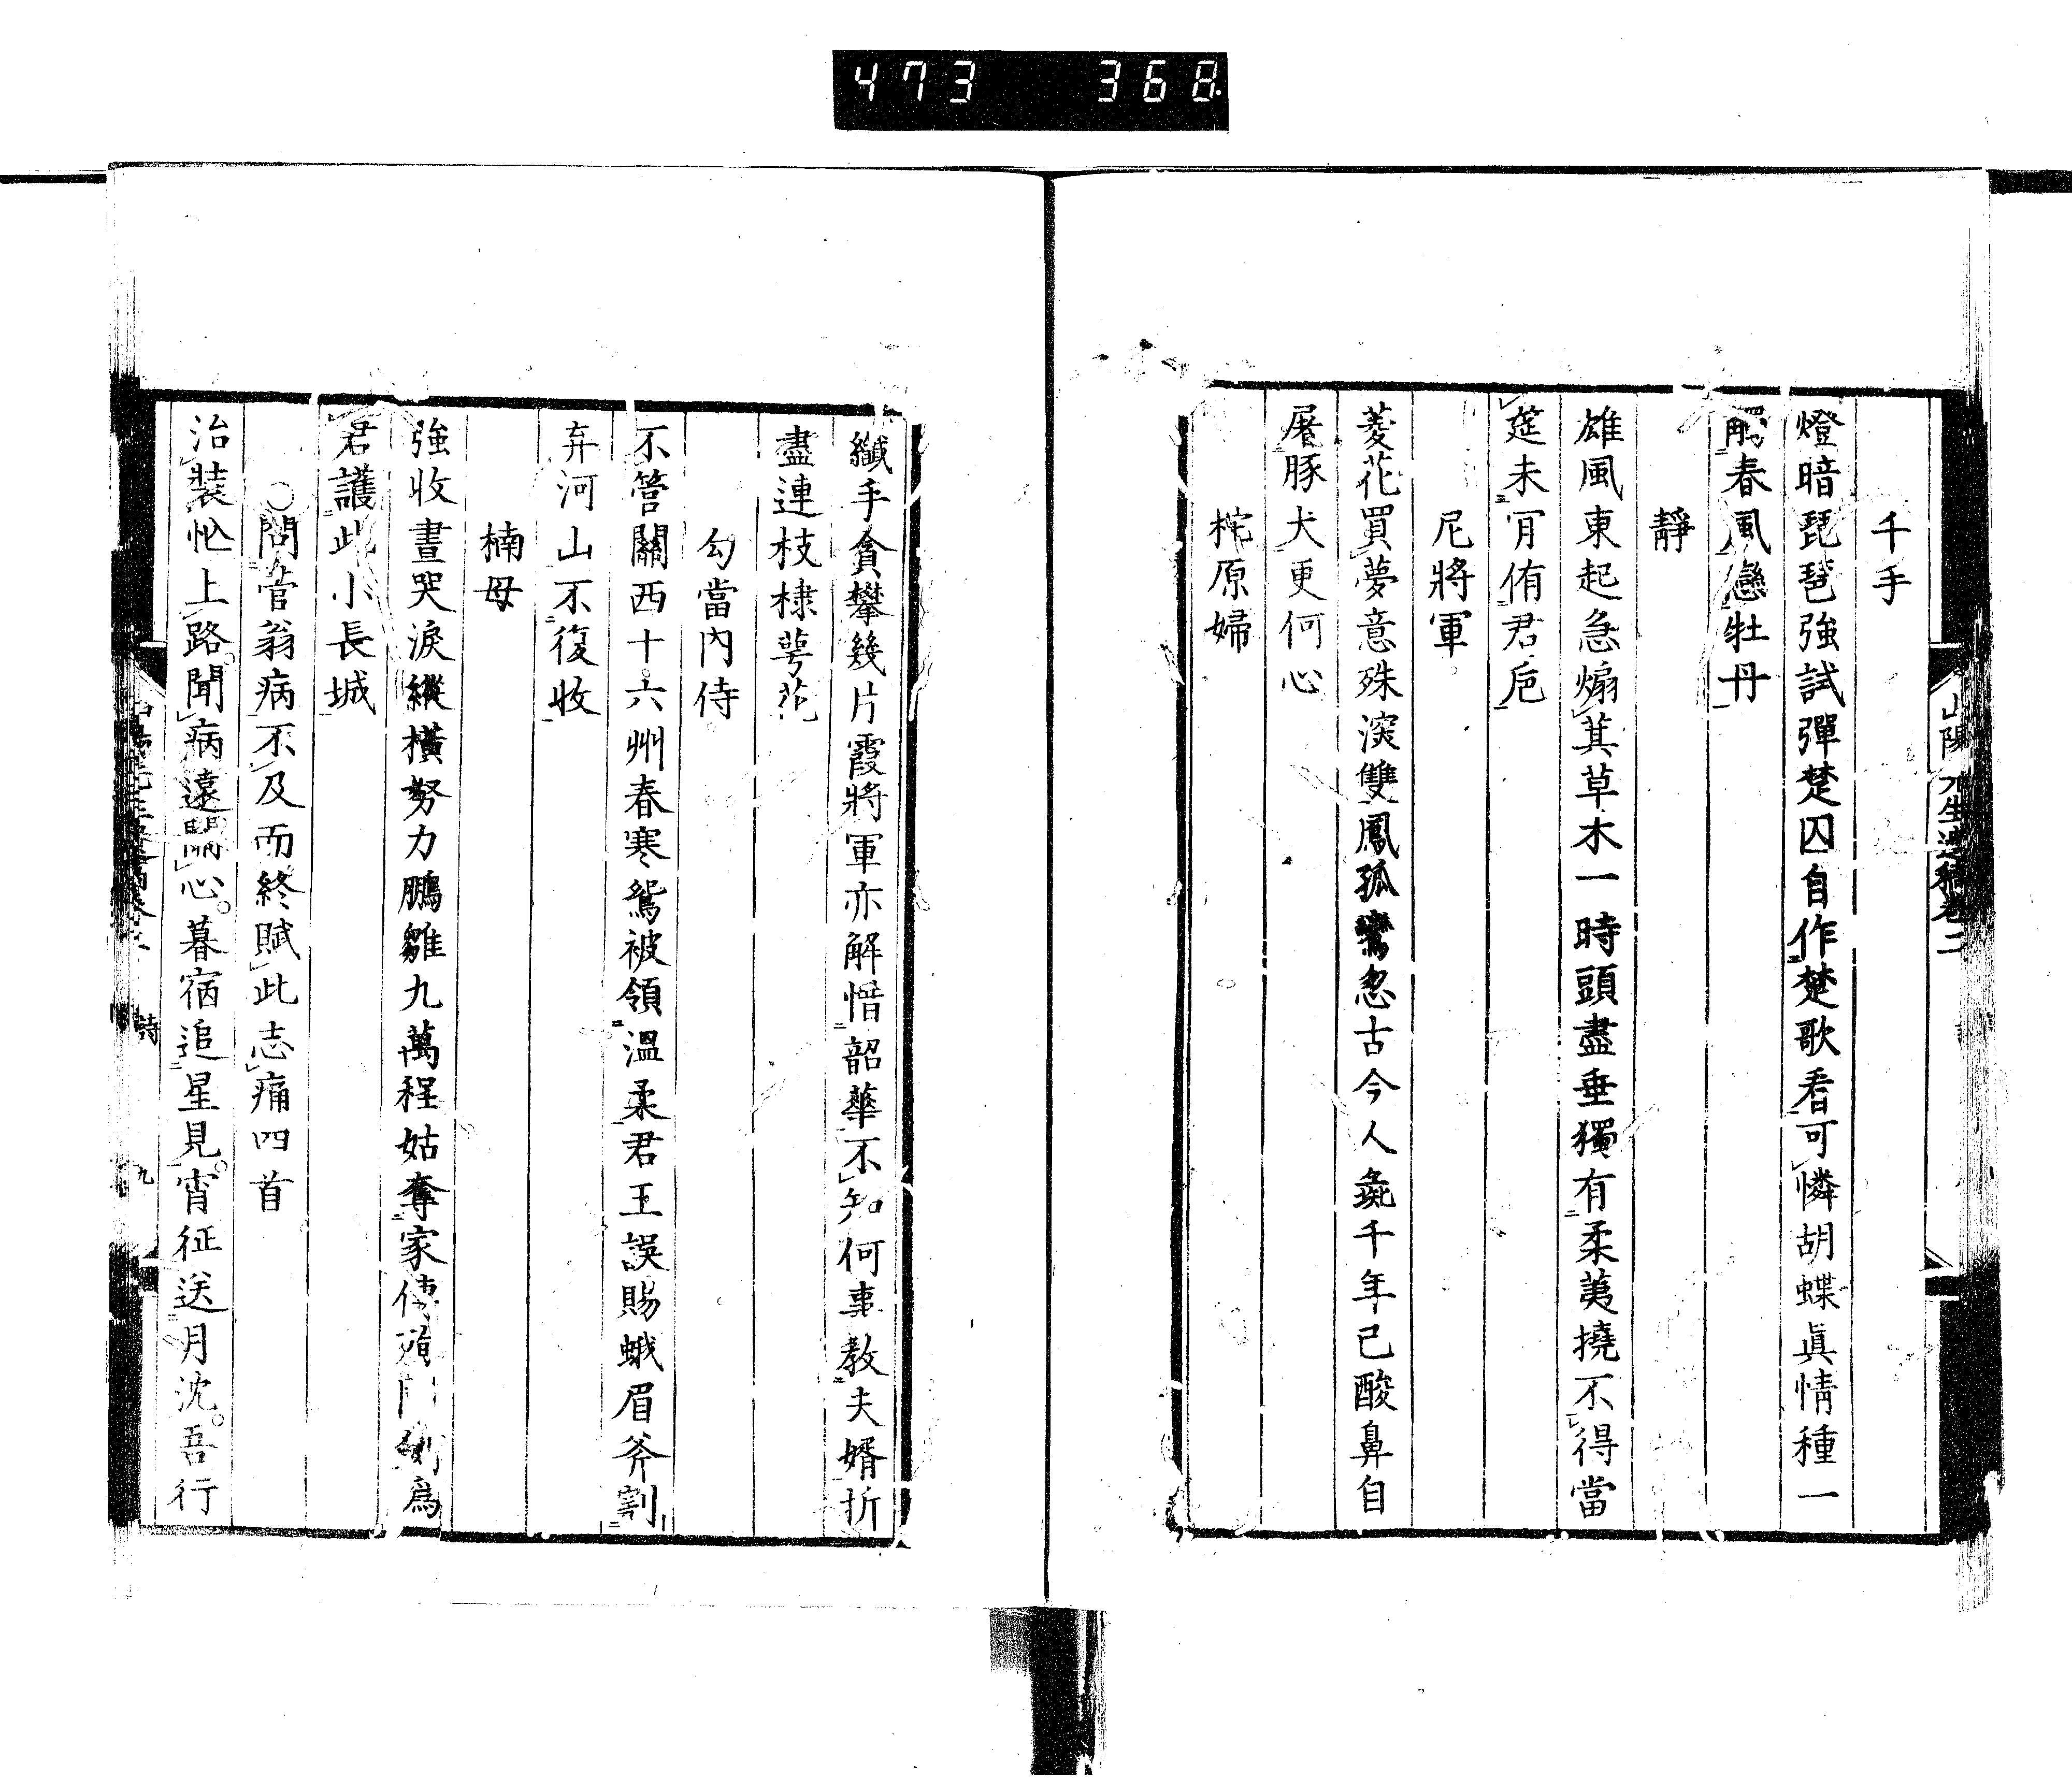 473 368
山陽先生遺稿卷二
千手
燈暗琵琶強試彈楚囚自作楚歌看可憐胡蝶眞情種一
觸春風戀牡丹
靜
雄風東起急煽萁草木一時頭盡垂獨有柔荑撓不得當
筵未肎侑君巵
尼將軍
菱花買夢意殊深雙鳳孤鸞忽古今人彘千年已酸鼻自
屠豚犬更何心
梶原婦
纖手貪攀幾片霞將軍亦解惜韶華不知何事教夫婿折
盡連枝棣萼花
勾當內侍
不管關西十六州春寒鴛被領溫柔君王誤賜蛾眉斧割
弃河山不復收
楠母
強收晝哭淚縱橫努力鵬雛九萬程姑奪家傳 爲
君護此小長城
○問菅翁病不及而終賦此志痛四首
治裝怱上路聞病遠關心暮宿追星見宵征送月沈吾行
詩
九